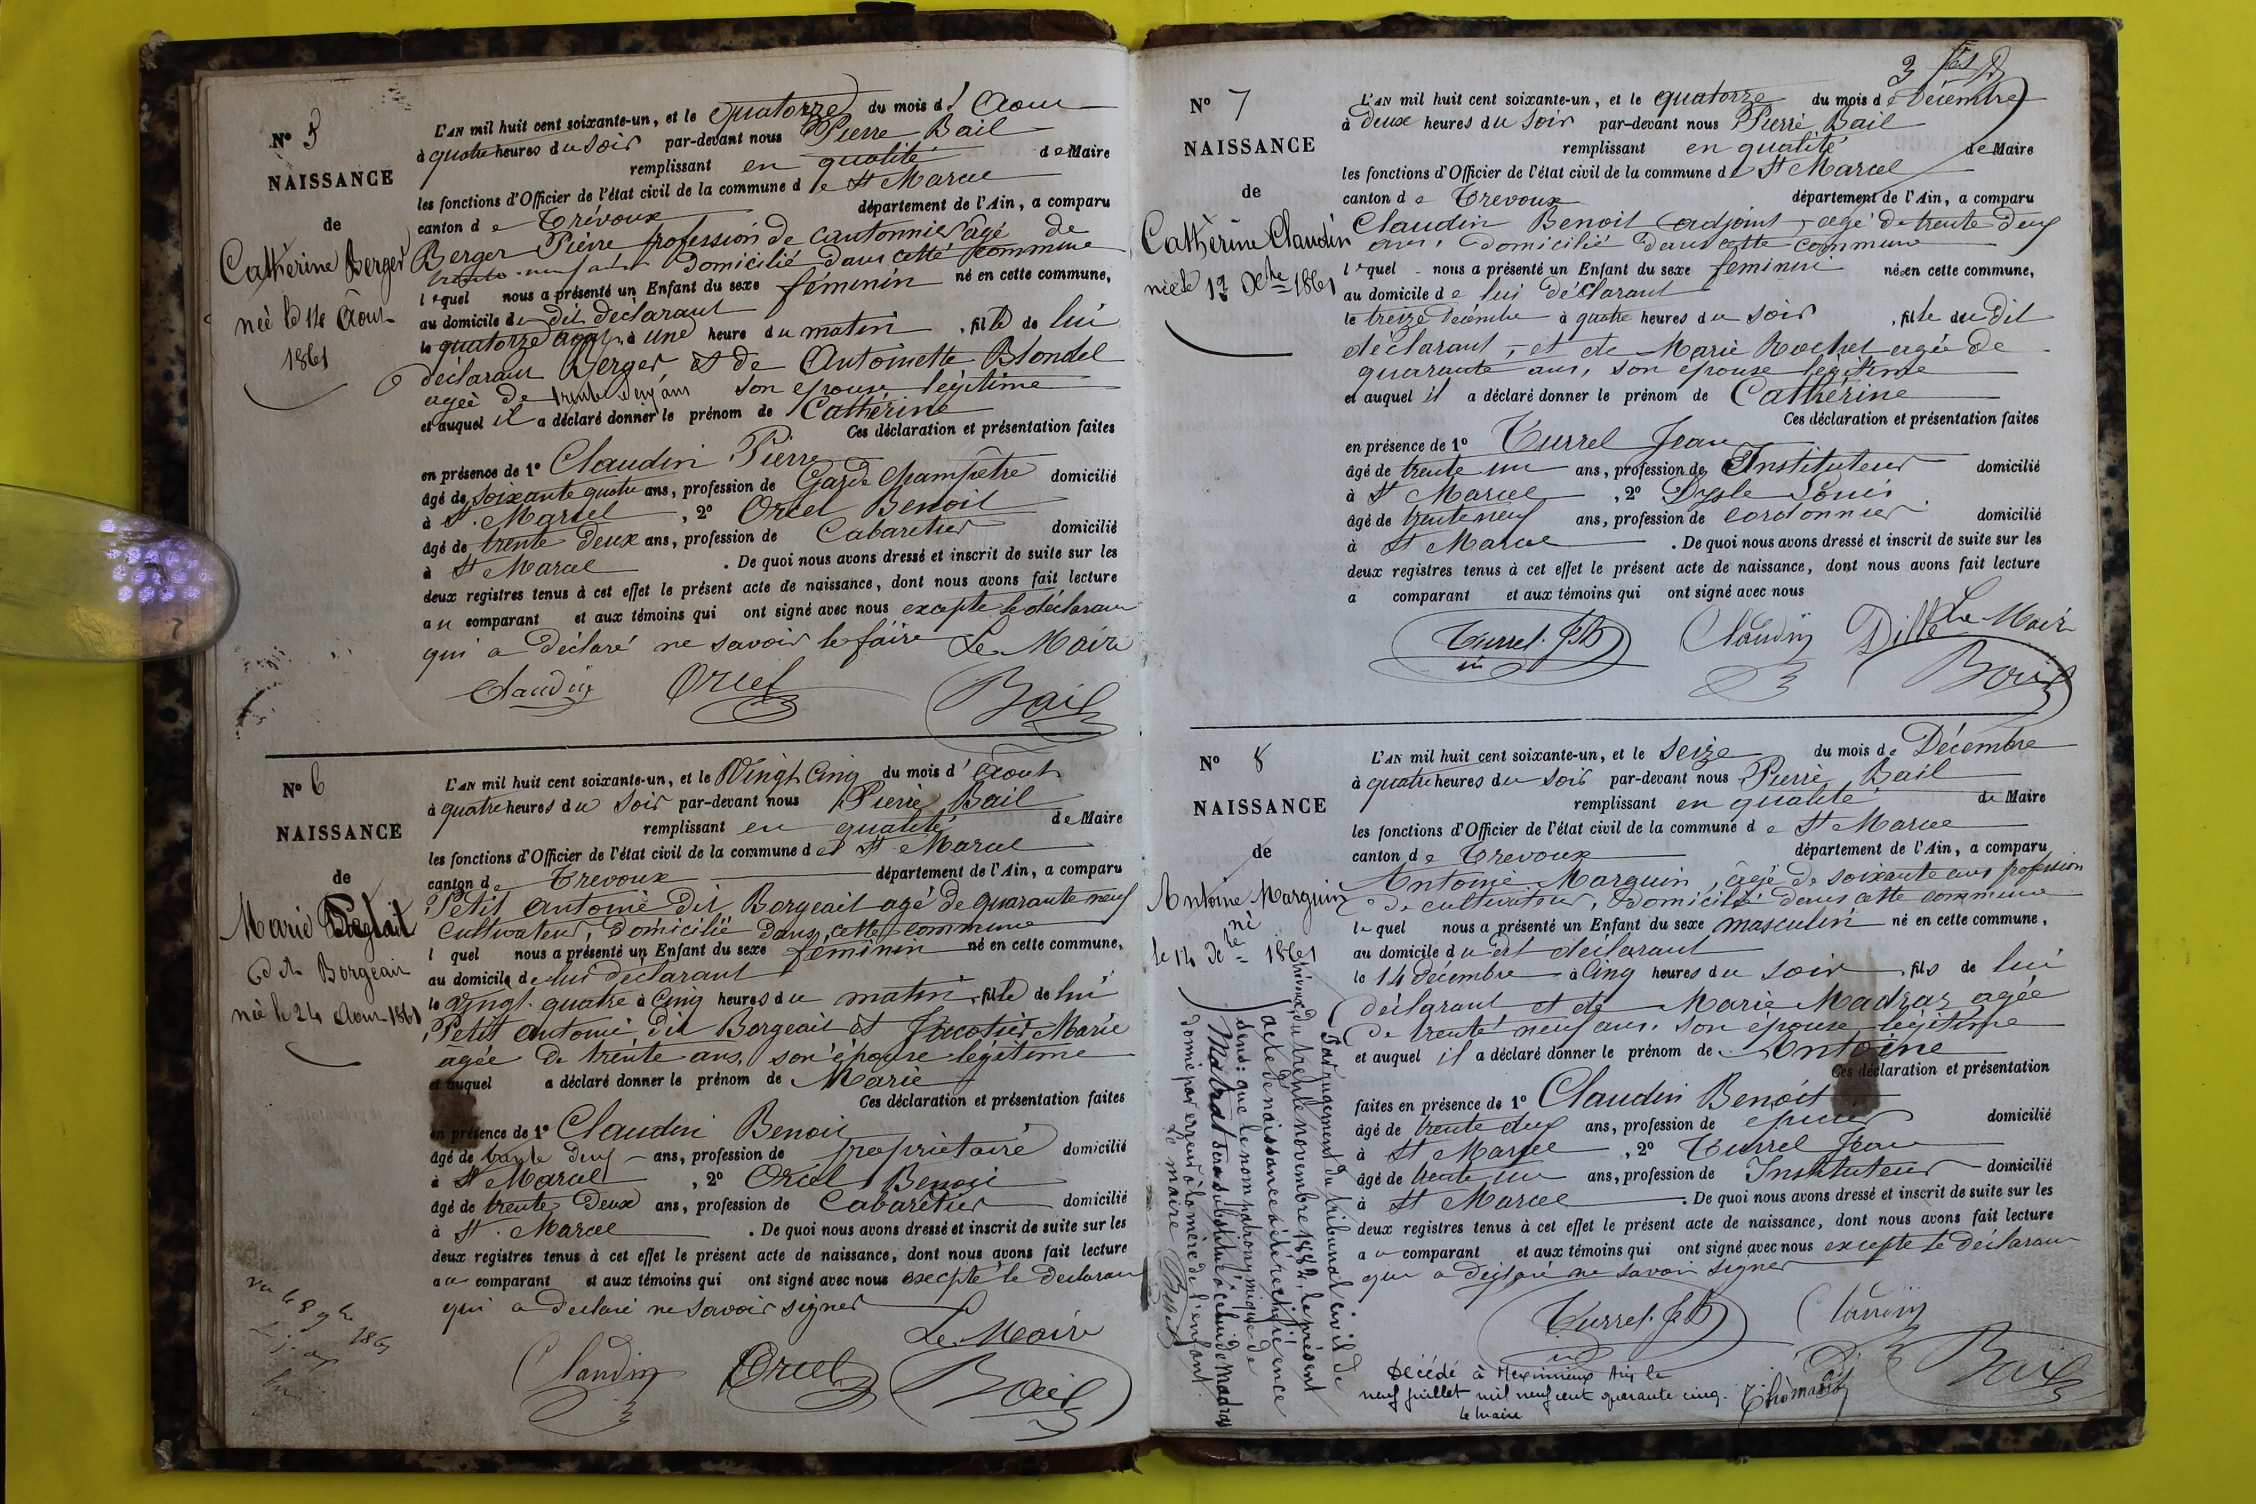 N° 5
NAISSANCE
de
Catherine Berger
née le 14 Aout
1861
L'AN mil huit cent soixante-un, et le quatorze du mois d' Aout
à quatre heures du soir par-devant nous Pierre Bail
remplissant en qualité de Maire
les fonctions d'Officier de l'état civil de la commune de St Marcel
canton de Trévoux département de l'Ain, a comparu
Berger Pierre profession de cantonnier âgé de
trente neuf ans domicilié dans cette commune
lequel nous a présenté un Enfant du sexe féminin né en cette commune,
au domicile du dit déclarant
le quatorze aout, à une heure du matin, fille de lui
déclarant Berger et de Antoinette Blondel
agée de trente deux ans son epouse légitime
et auquel il a déclaré donner le prénom de Catherine
Ces déclaration et présentation faites
en présence de 1° Claudin Pierre
âgé de soixante quatre ans, profession de Garde champêtre domicilié
à St. Marcel, 2° Orcel Benoit
âgé de trente deux ans, profession de Cabaretier domicilié
à St Marcel. De quoi nous avons dressé et inscrit de suite sur les
deux registres tenus à cet effet le présent acte de naissance, dont nous avons fait lecture
au comparant et aux témoins qui ont signé avec nous excepté le déclarant
qui a déclaré ne savoir le faire Le Maire
Claudin Orcel Bail
N° 6
NAISSANCE
de
Marie
dit Borgeait
née le 24 Aout 1861
L'AN mil huit cent soixante-un, et le Vingt Cinq du mois d' Aout
à quatre heures du soir par-devant nous Pierre Bail
remplissant en qualité de Maire
les fonctions d'Officier de l'état civil de la commune de St Marcel
canton de Trevoux département de l'Ain, a comparu
Petit Antoine dit Borgeait agé de quarante neuf
cultivateur, domicilié dans cette commune
l quel nous a présenté un Enfant du sexe féminin né en cette commune,
au domicile de lui déclarant
le vingt quatre à cinq heures du matin, fille de lui
Petit Antoine dit Borgeait et Jacotier Marie
agée de trente ans, son épouse légitime
et auquel a déclaré donner le prénom de Marie
Ces déclaration et présentation faites
en présence de 1° Claudin Benoit
âgé de trente deux ans, profession de propriétaire domicilié
à St Marcel, 2° Orcel Benoit
âgé de trente deux ans, profession de Cabaretier domicilié
à St. Marcel. De quoi nous avons dressé et inscrit de suite sur les
deux registres tenus à cet effet le présent acte de naissance, dont nous avons fait lecture
au comparant et aux témoins qui ont signé avec nous excepté le déclarant
qui a déclaré ne savoir signer
Le Maire
Claudin Orcel Bail
3
N° 7
NAISSANCE
de
Catherine Claudin
née le 13 Xbre 1861
L'AN mil huit cent soixante-un, et le quatorze du mois de Décembre
à deux heures du soir par-devant nous Pierre Bail
remplissant en qualité de Maire
les fonctions d'Officier de l'état civil de la commune de St Marcel
canton de Trevoux département de l'Ain, a comparu
Claudin Benoit adjoint, agé de trente deux
ans, domicilié dans cette commune
lequel nous a présenté un Enfant du sexe feminin née en cette commune,
au domicile de lui déclarant
le treize Décembre à quatre heures du soir, fille du dit
déclarant, et de Marie Rochet agée de
quarante ans, son épouse légitime
et auquel il a déclaré donner le prénom de Catherine
Ces déclaration et présentation faites
en présence de 1° Turrel Jean
âgé de trente un ans, profession de Instituteur domicilié
à St Marcel, 2° Louis
âgé de trente neuf ans, profession de cordonnier domicilié
à St Marcel. De quoi nous avons dressé et inscrit de suite sur les
deux registres tenus à cet effet le présent acte de naissance, dont nous avons fait lecture
a comparant et aux témoins qui ont signé avec nous
Turrel Claudin Le Maire
Bail
N° 8
NAISSANCE
de
Antoine Marguin
né
le 14 Xbre 1861
L'AN mil huit cent soixante-un, et le seize du mois de Décembre
à quatre heures du soir par-devant nous Pierre Bail
remplissant en qualité de Maire
les fonctions d'Officier de l'état civil de la commune de St Marcel
canton de Trevoux département de l'Ain, a comparu
Antoine Marguin, âgé de soixante ans profession
de cultivateur, domicilié dans cette commune
lequel nous a présenté un Enfant du sexe masculin né en cette commune,
au domicile du dit déclarant
le 14 décembre à cinq heures du soir, fils de lui
déclarant et de Marie Madras agée
de trente neuf ans, son épouse légitime
et auquel il a déclaré donner le prénom de Antoine
Ces déclaration et présentation
faites en présence de 1° Claudin Benoit
âgé de trente deux ans, profession de epicier domicilié
à St Marcel, 2° Turrel Jean
âgé de trente un ans, profession de Instituteur domicilié
à St Marcel. De quoi nous avons dressé et inscrit de suite sur les
deux registres tenus à cet effet le présent acte de naissance, dont nous avons fait lecture
au comparant et aux témoins qui ont signé avec nous excepté le déclarant
qui a déclaré ne savoir signer
Turrel Claudin
Bail
Par jugement du tribunal civil de
Trévoux, du trente novembre 1882, le présent
acte de naissance a été rectifié en ce
sens: que le nom patronymique de
Madras sera substitué à celui de
donné par erreur à la mère de l'enfant.
Le maire
Décédé à Meximieux Ain le
neuf juillet mil neuf cent quarante cinq.
Le Maire